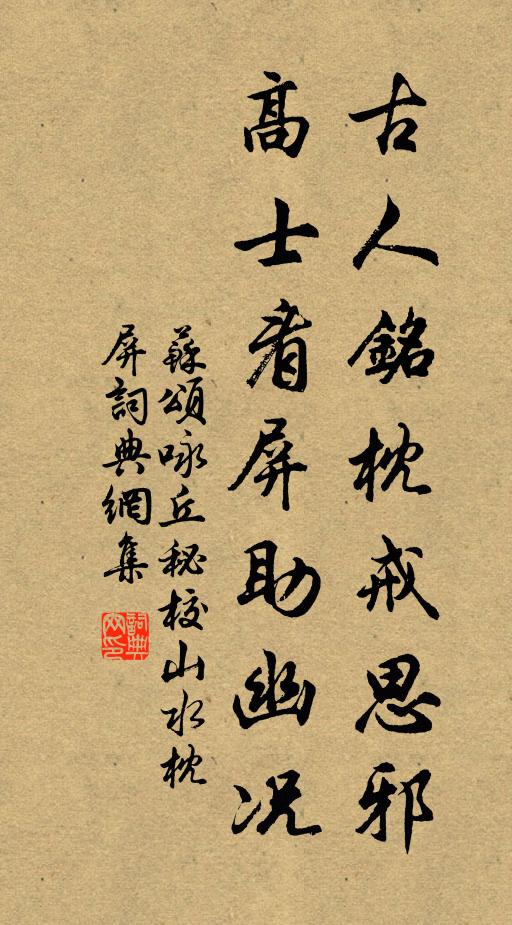 古人銘枕戒思邪
高士看屏助幽况
蘇頌咏丘秘校山水枕
屏詞典網集
詞典網印